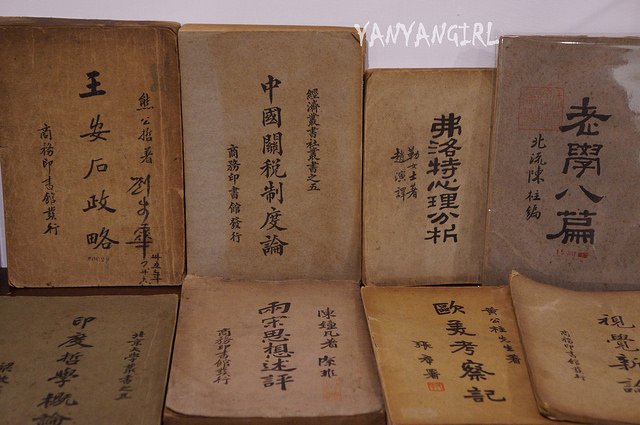 YANYANGIRL
熊公哲著
王安石政略
商務印書館發行
經濟叢書社叢書之五
中國關稅制度論
商務印書館發行
弗洛特心理分析
勒女士著
趙演譯
老學八篇
北流陳柱編
北京大學叢書之五
印度哲學概論
陳鍾凡著
兩宋思想述評
商務印書館發行
黃公柱先生著
歐美考察記
視覺新論
商務印書館發行